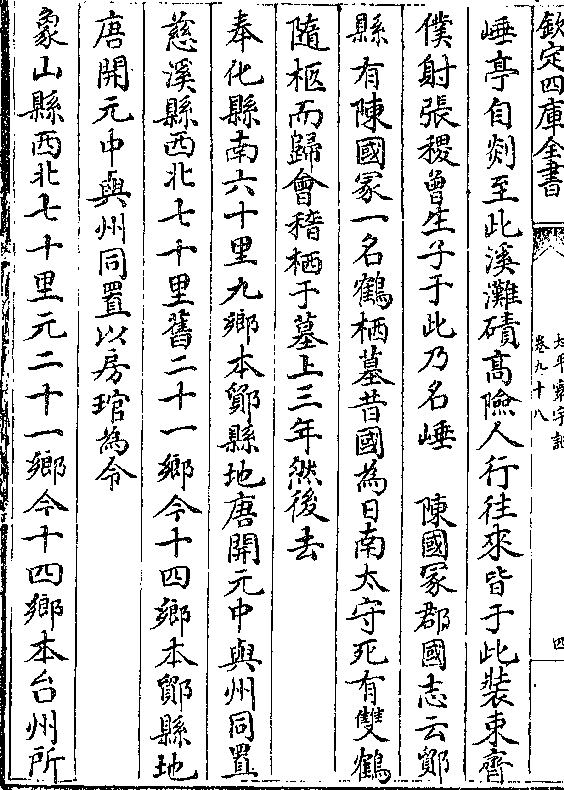 欽定四庫全書
太平寰宇記
卷九十八
四
㟧亭自剡至此溪灘磧高險人行往來皆于此裝束齊
僕射張稷曾生子于此乃名㟧　陳國冢郡國志云鄮
縣有陳國冢一名鶴栖墓昔國為日南太守死有雙鶴
隨柩而歸會稽栖于墓上三年然後去
奉化縣南六十里九鄉本鄮縣地唐開元中與州同置
慈溪縣西北七十里舊二十一鄉今十四鄉本鄮縣地
唐開元中與州同置以房琯為令
象山縣西北七十里元二十一鄉今十四鄉本台州所